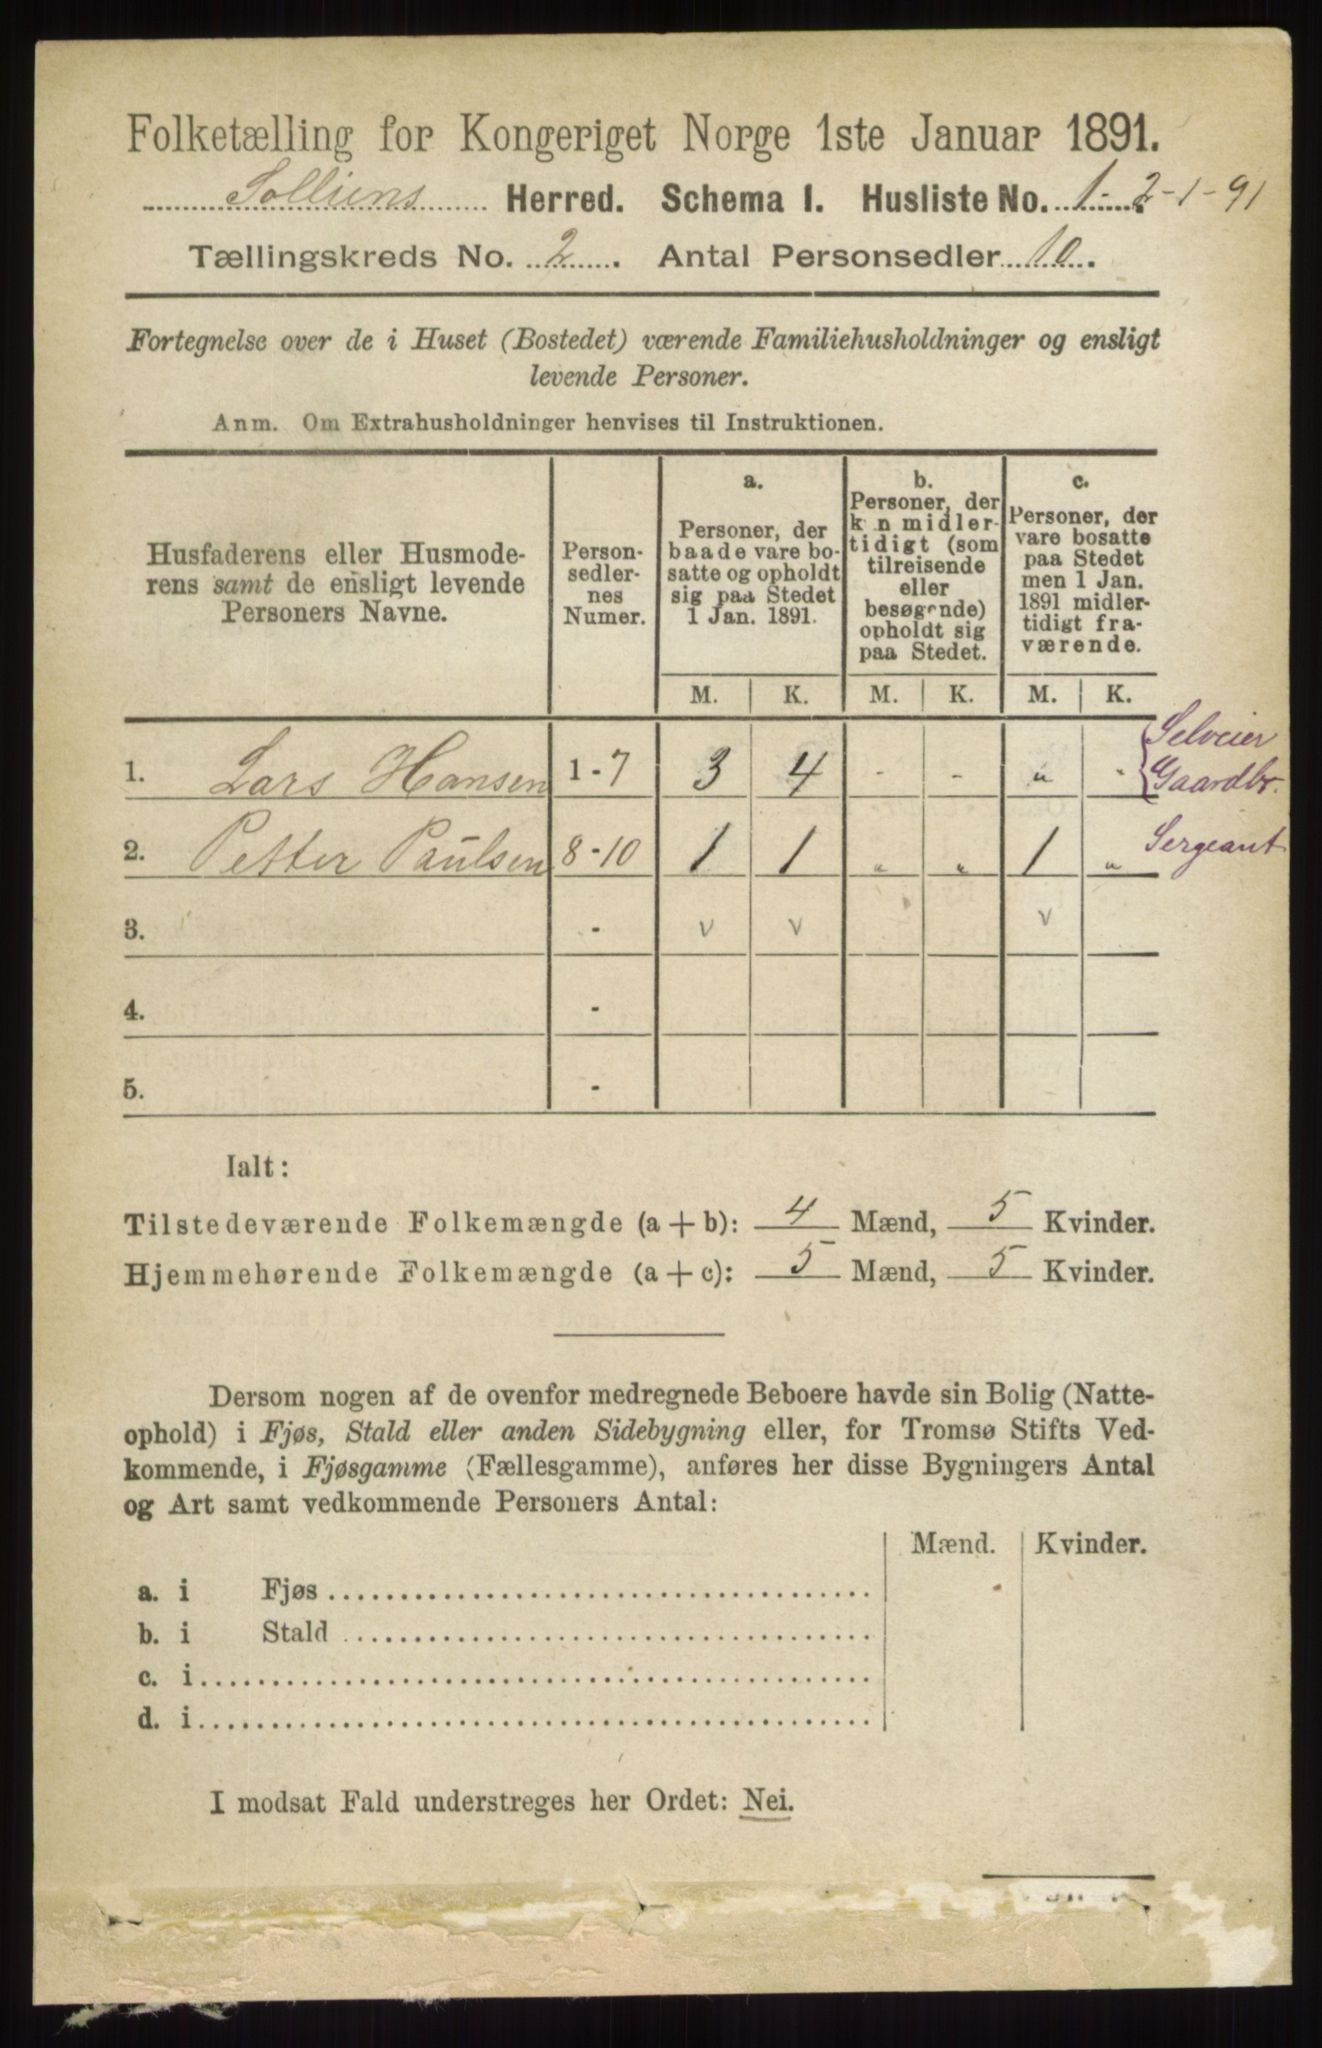 Folketælling for Kongeriget Norge 1ste Januar 1891.
Solliens Herred. Schema I. Husliste No. 1 - 2-1-91
Tællingskreds No. 2. Antal Personsedler 10.
Fortegnelse over de i Huset (Bostedet) værende Familiehusholdninger og ensligt
levende Personer.
Anm. Om Extrahusholdninger henvises til Instruktionen.
Husfaderens eller Husmode-
rens samt de ensligt levende
Personers Navne.
Person-
sedler-
nes
Numer.
a.
Personer, der
baade vare bo-
satte og opholdt
sig paa Stedet
1 Jan. 1891.
b.
Personer, der
kun midler-
tidigt (som
tilreisende
eller
besøgende)
opholdt sig
paa Stedet.
c.
Personer, der
vare bosatte
paa Stedet
men 1 Jan.
1891 midler-
tidigt fra-
værende.
M. K. M. K. M. K.
1. Lars Hansen 1-7 3 4 - - „ - Selveier
Gaardbr.
2. Petter Paulsen 8-10 1 1 „ „ 1 „ Sergeant
3. - v v v
4. -
5. -
Ialt:
Tilstedeværende Folkemængde (a + b): 4 Mænd, 5 Kvinder.
Hjemmehørende Folkemængde (a + c): 5 Mænd, 5 Kvinder.
Dersom nogen af de ovenfor medregnede Beboere havde sin Bolig (Natte-
ophold) i Fjøs, Stald eller anden Sidebygning eller, for Tromsø Stifts Ved-
kommende, i Fjøsgamme (Fællesgamme), anføres her disse Bygningers Antal
og Art samt vedkommende Personers Antal:
Mænd. Kvinder.
a. i Fjøs
b. i Stald
c. i
d. i
I modsat Fald understreges her Ordet: Nei.